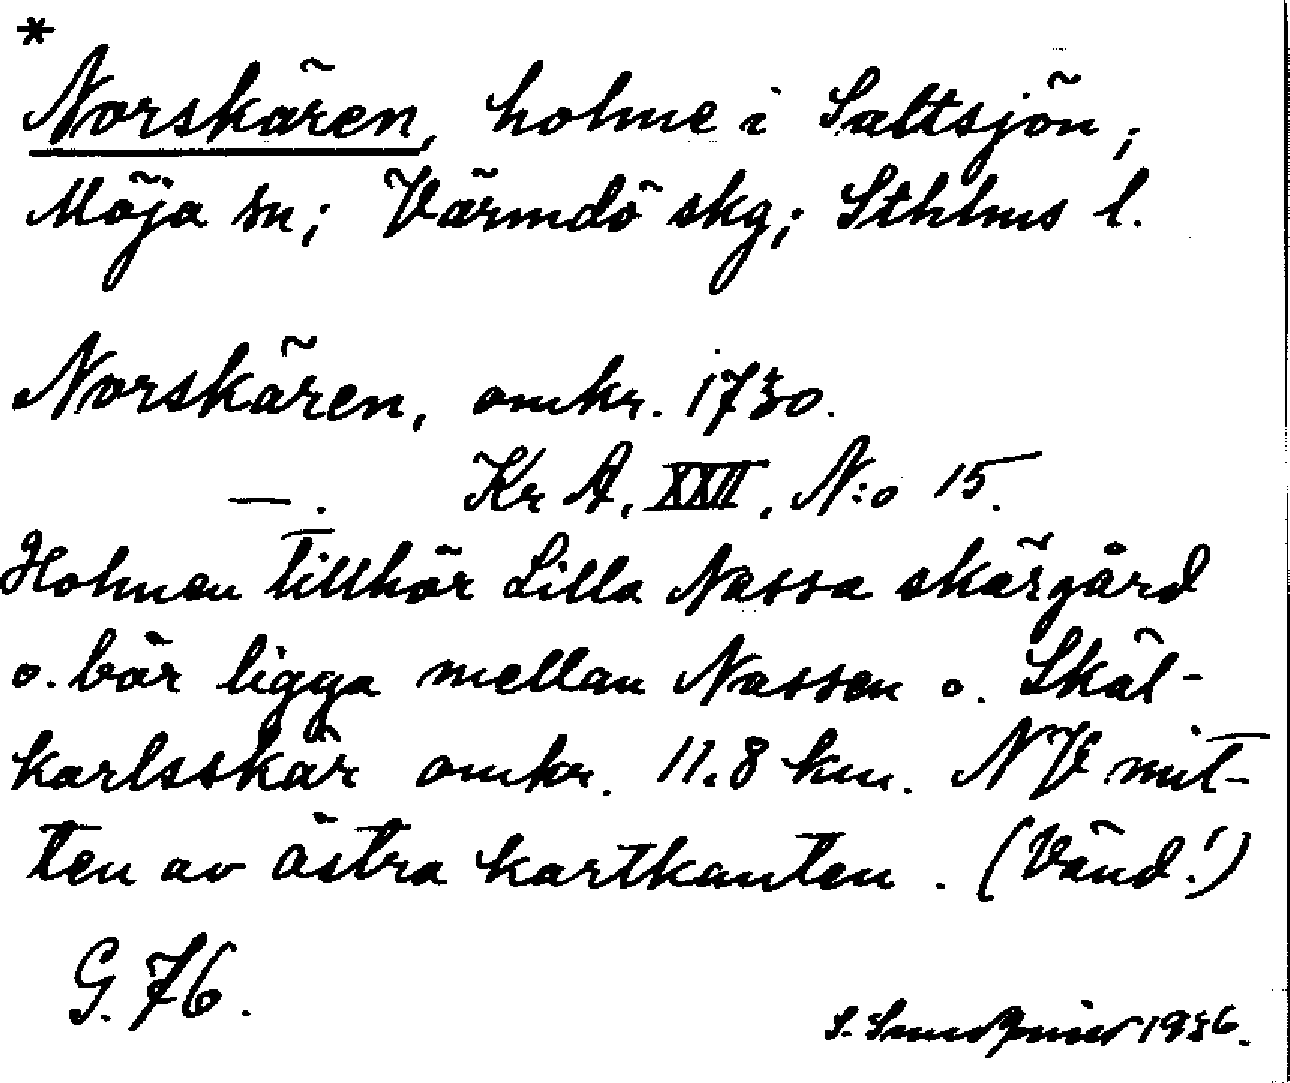 *
Norskären, holme i Saltsjön,
Möja sn; Värmdö skg; Sthlms l.
Norskären, omkr. 1730.
—. Kr A, XXII, N:o 15.
Holmen tillhör Lilla Nassa skärgård
o. bör ligga mellan Nassen o. Skäl-
karlsskär omkr. 11.8 km. NV mit-
ten av östra kartkanten. (Vänd!)
G. 76.
S. 1936.